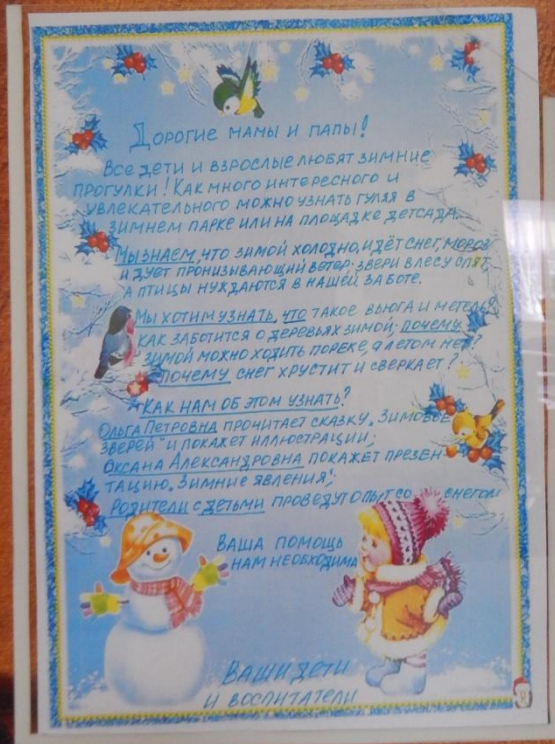 Дорогие мамы и папы!
Все дети и взрослые любят зимние
прогулки! Как много интересного и
увлекательного можно узнать гуляя в
зимнем парке или на площадке детсада.
Мы знаем, что зимой холодно, идёт снег, мороз
и дует пронизывающий ветер. Звери в лесу спят,
а птицы нуждаются в нашей заботе.
Мы хотим узнать, что такое вьюга и метель?
Как заботится о деревьях зимой; почему
зимой можно ходить по реке, а летом нет?
Почему снег хрустит и сверкает?
Как нам об этом узнать?
Ольга Петровна прочитает сказку „Зимовье
зверей" и покажет иллюстрации;
Оксана Александровна покажет презен-
тацию „Зимние явления";
Родители с детьми проведут опыт со снегом
Ваша помощь
нам необходима
Ваши дети
и воспитатели